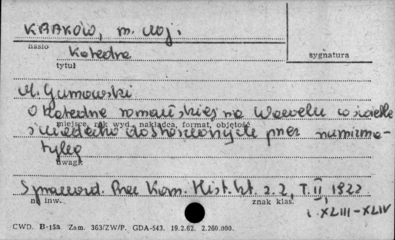 KRAKÓW, m. woj.
hasło
Katedra
sygnatura
tytuł
M. Gumowski
O katedrze romańskiej na Wawelu w świetle
miejsce, rok wyd., nakładca, format, objętość
świadectw dostarczonych przez numizma-
tykę
uwagi
Sprawozd. Prac Kom. Hist. Szt. z. 2, T. II, 1922
n. inw.
znak klas.
s. XLIII-XLIV
CWD. B-15a Zam. 363/ZW/P. GDA-543. 19.2.62. 2.260.000.